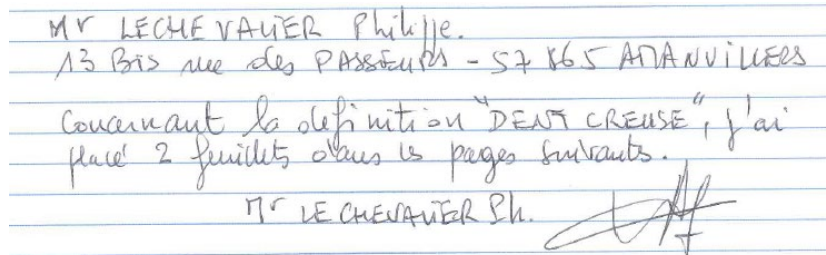 Mr LECHEVALIER Philippe.
13 Bis rue des PASSEURS - 57 865 AMANVILLERS
Concernant la definition "DENT CREUSE", j'ai
placé 2 feuillets dans les pages suivants.
Mr LECHEVALIER Ph.